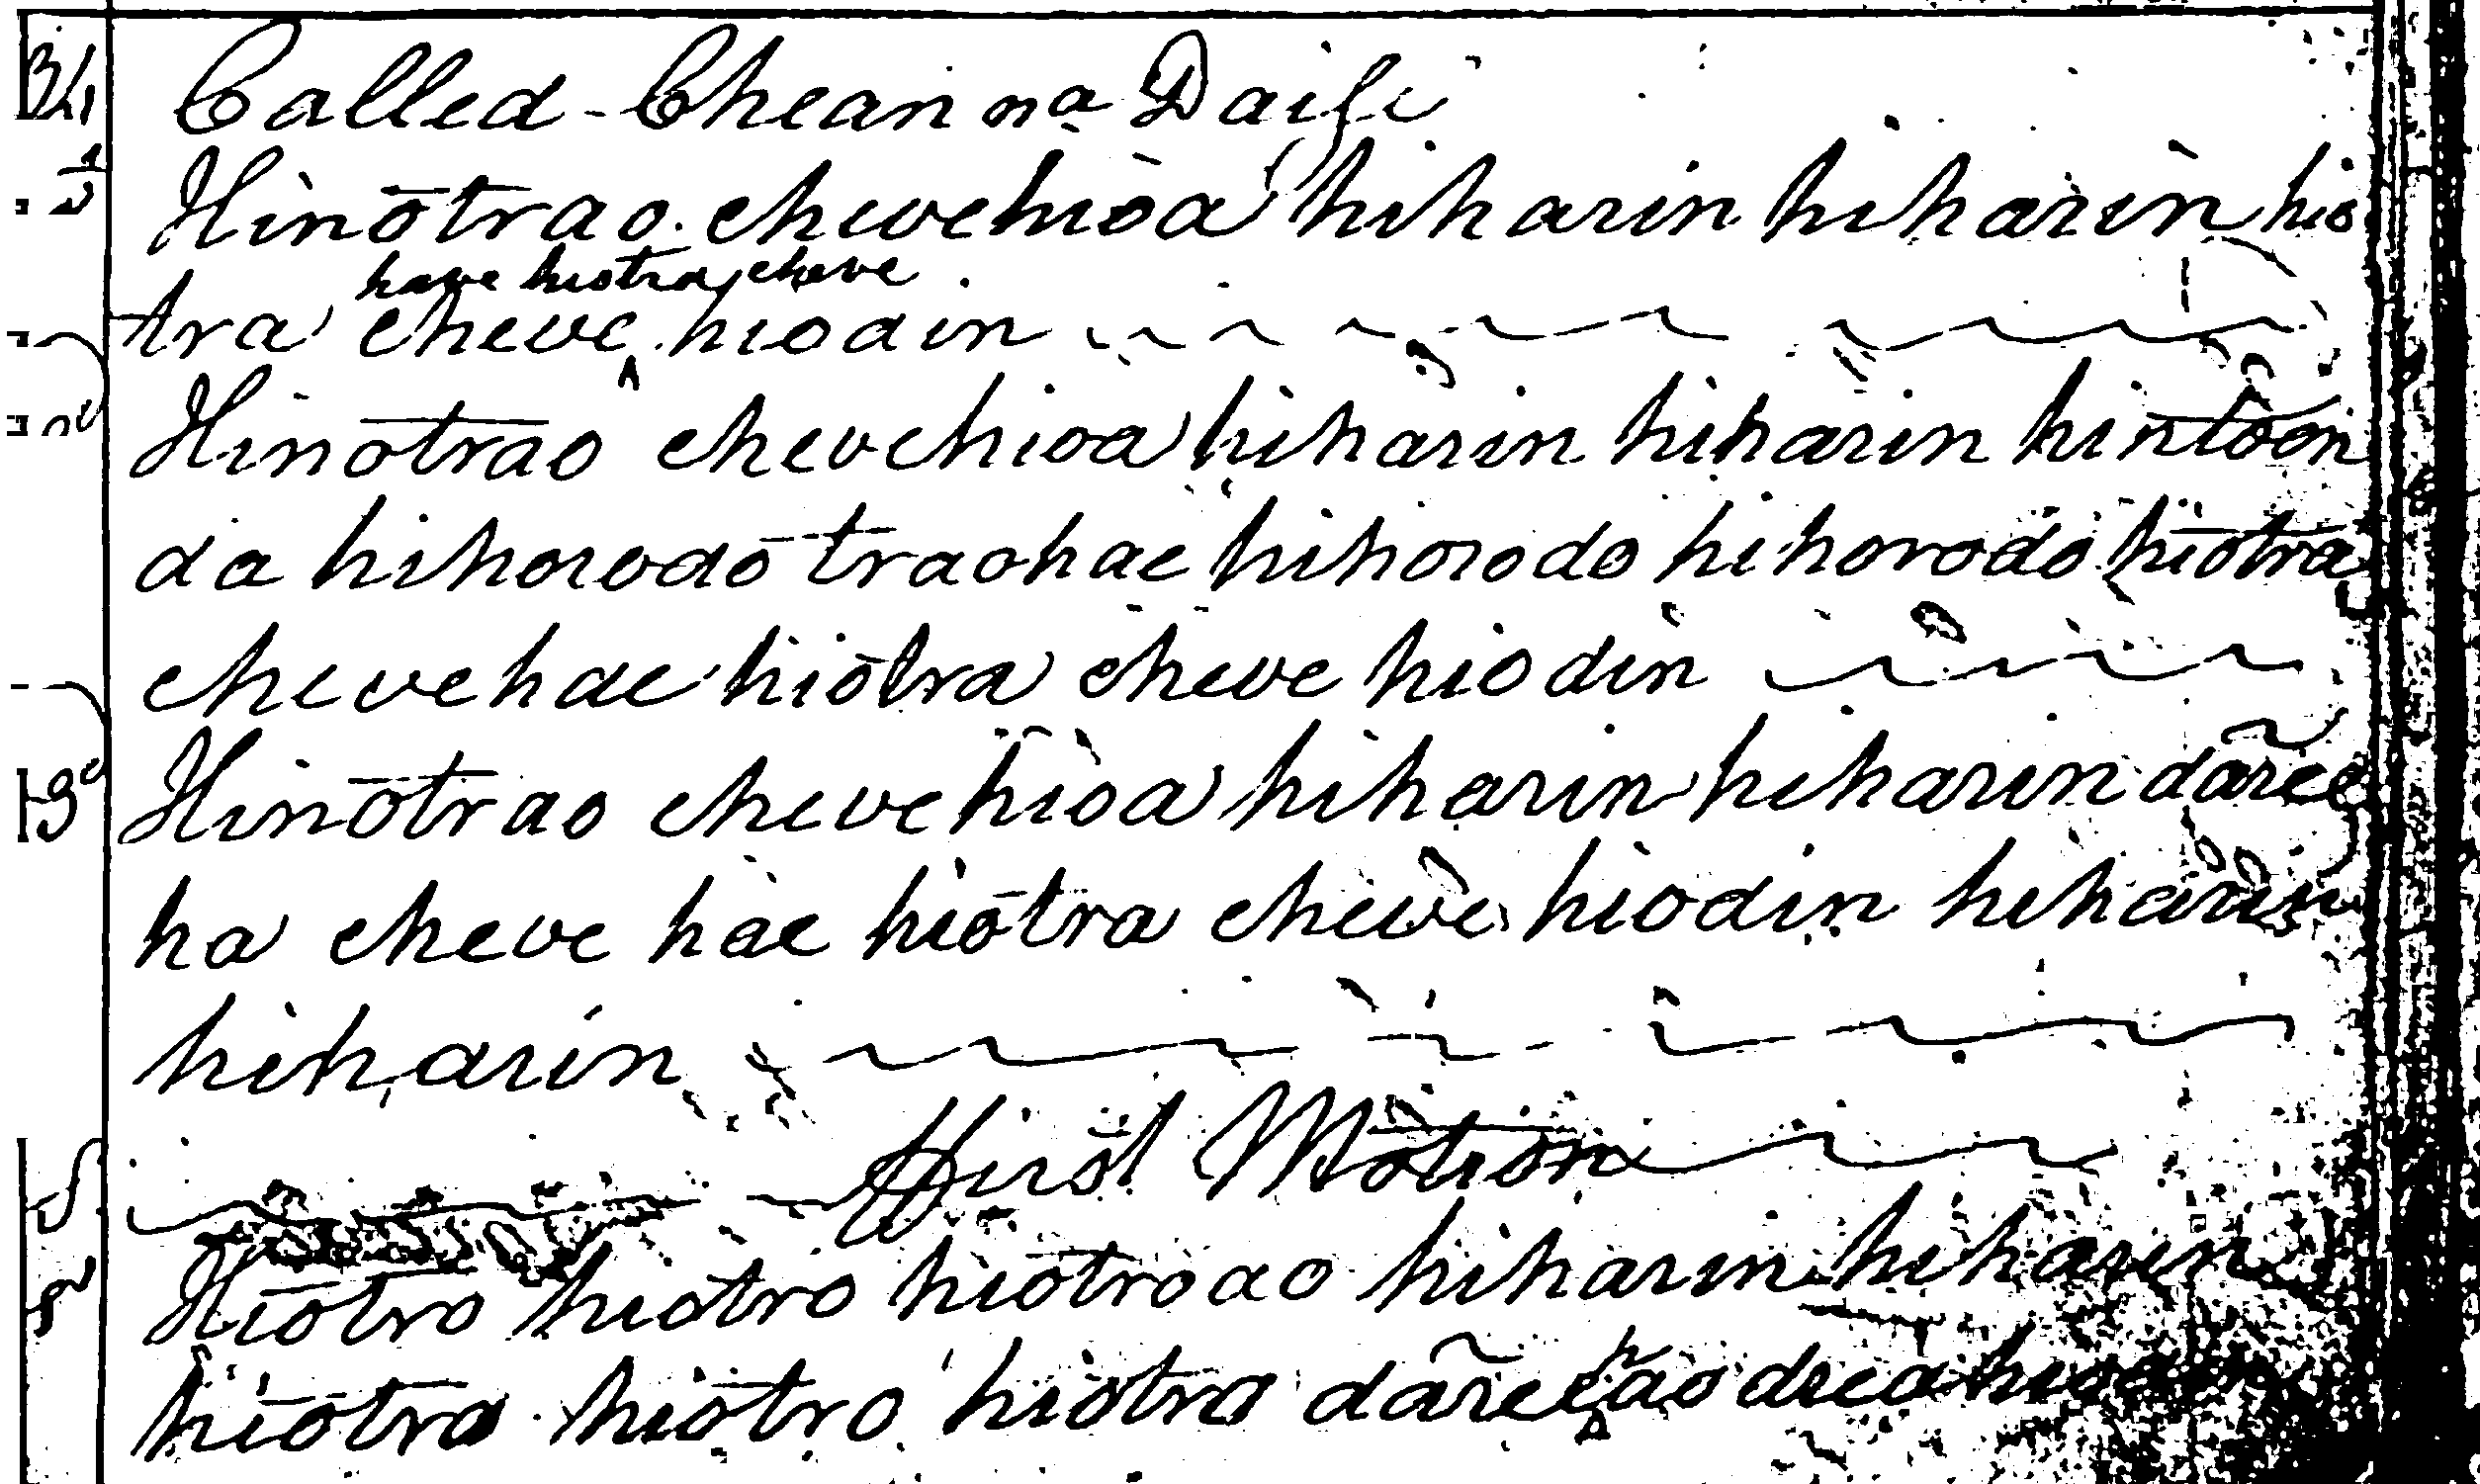 Called - Cheann na Daise
Hinotrao chevehioa hiharin hiharin hio
have hiotra cheve
tra cheve hiodin
Hinotrao chevehioa hiharin hiharin hintoon
da hihorodo traohae hihorodo hihorodo hiotra
chevehae hiotra cheve hiodin
Hinotrao chevehioa hiharin hiharin dãree
ha cheve hae hiotra cheve hiodin hiharin
hiharin
First Motion
Hiotro hiotro hiotroao hiharin hiharin
hiotra hiotro hiotra dãree hao drea